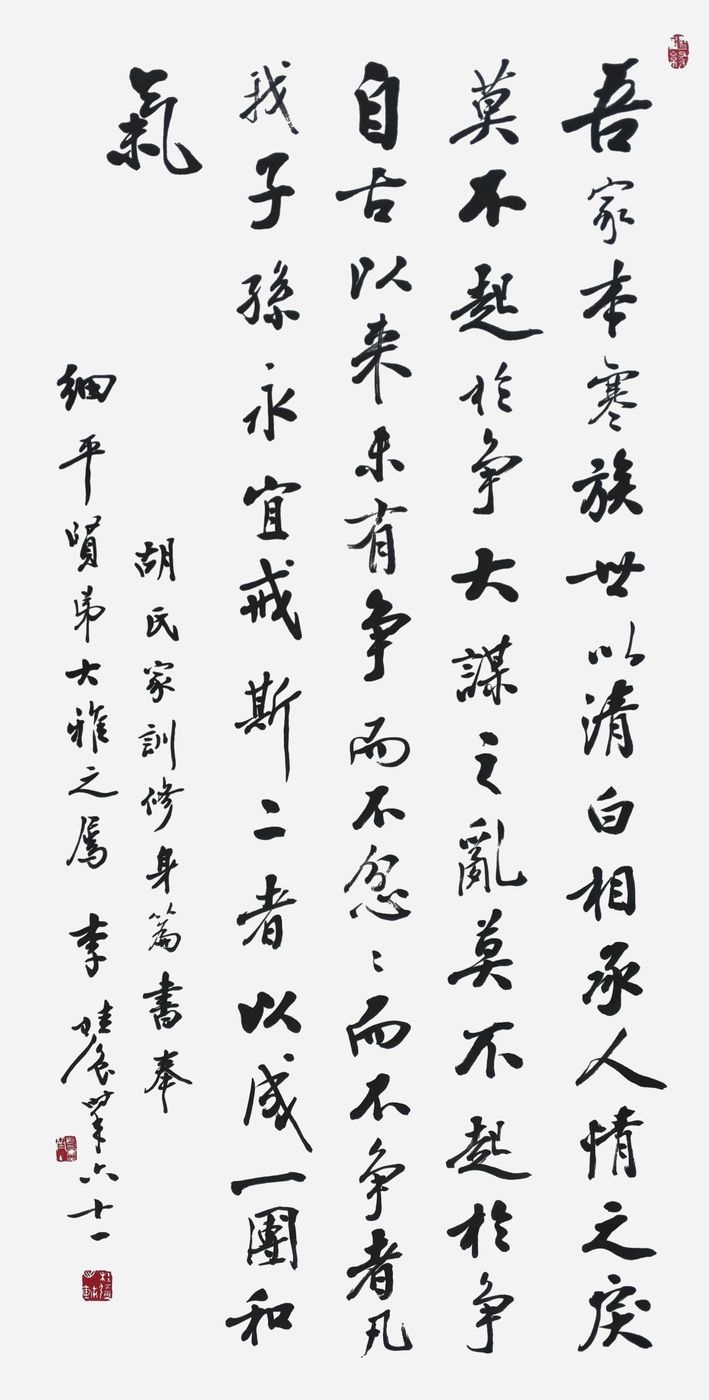 吾家本寒族世以清白相承人情之戾
莫不起於争大謀之亂莫不起於争
自古以来未有争而不忿〻而不争者凡
我子孫永宜戒斯二者以成一團和
氣
胡氏家訓修身篇書奉
細平賢弟大雅之屬 李 時年六十一